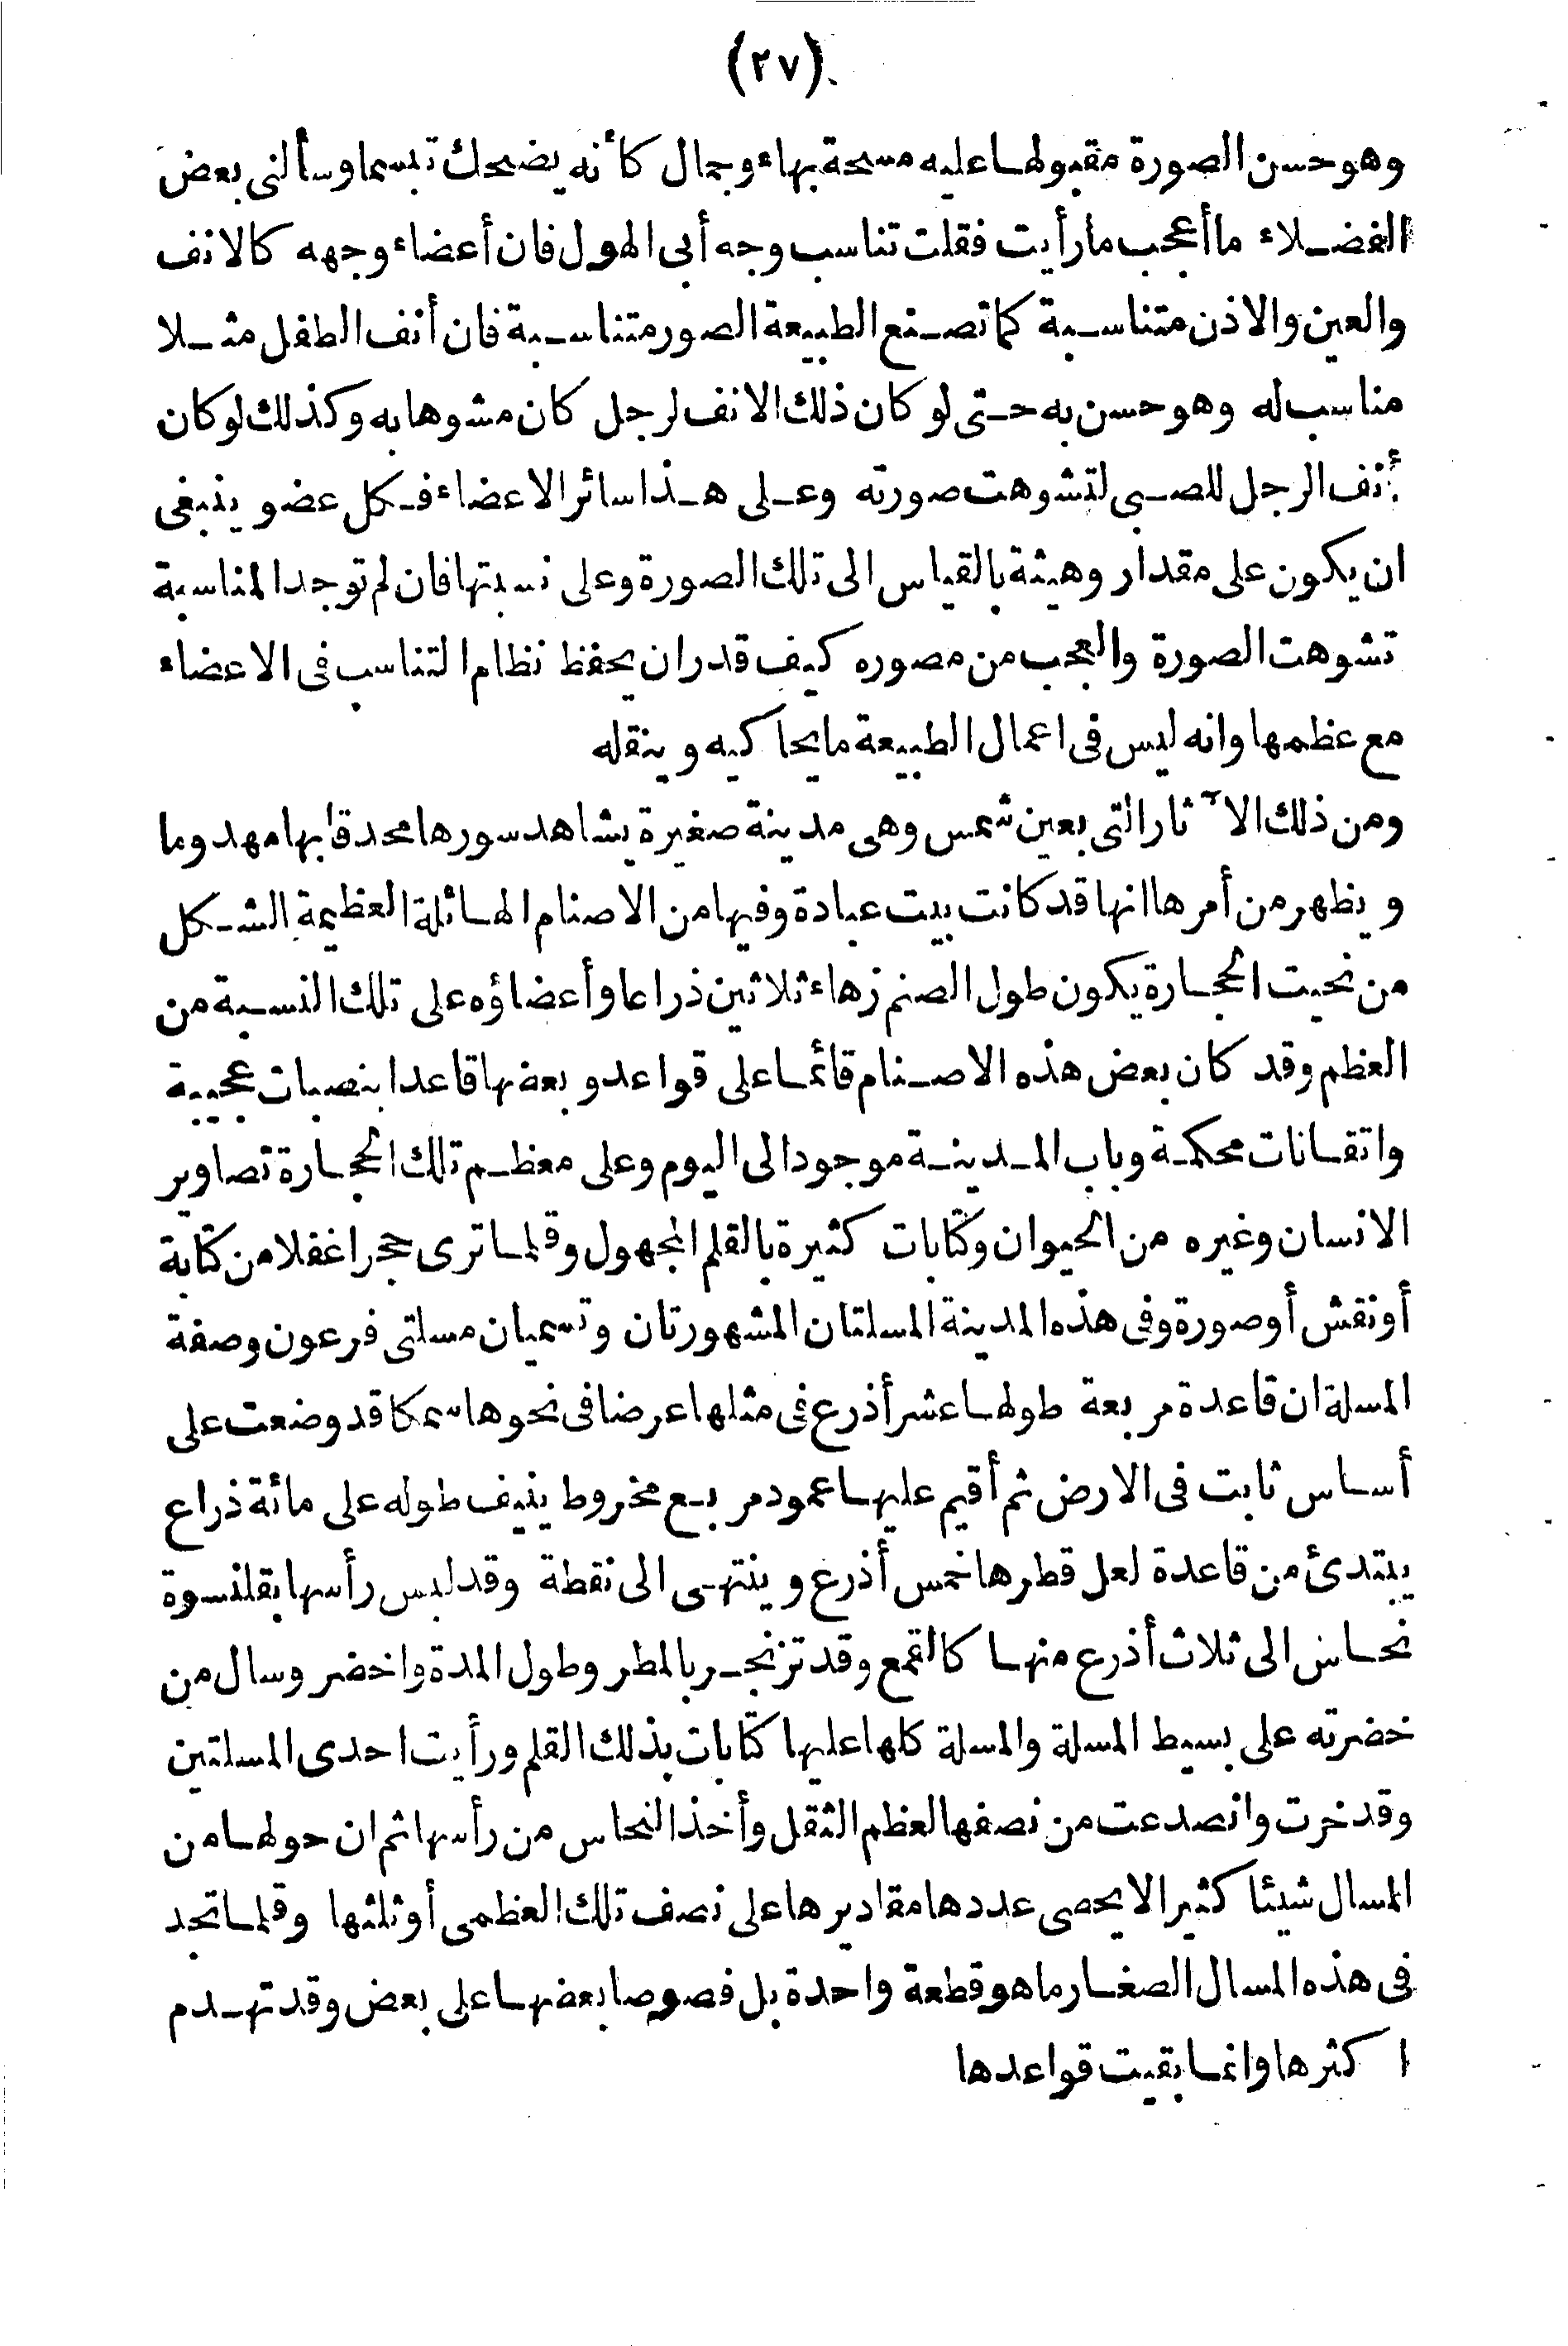 (٢٧)
وهو حسن الصورة مقبولها عليه مسحة بهاء وجمال كأنه يضحك تبسما وسألنى بعض
الفضلاء ما أعجب ما رأيت فقلت تناسب وجه أبى الهول فان أعضاء وجهه كالانف
والعين والاذن متناسبة كما تصنع الطبيعة الصور متناسبة فان أنف الطفل مثلا
مناسب له وهو حسن به حتى لو كان ذلك الانف لرجل كان مشوها به وكذلك لو كان
أنف الرجل للصبى لتشوهت صورته وعلى هذا سائر الاعضاء فكل عضو ينبغى
ان يكون على مقدار وهيئة بالقياس الى تلك الصورة وعلى نسبتها فان لم توجد المناسبة
تشوهت الصورة والعجب من مصوره كيف قدر ان يحفظ نظام التناسب فى الاعضاء
مع عظمها وانه ليس فى اعمال الطبيعة ما يحاكيه وينقله
ومن ذلك الآثار التى بعين شمس وهى مدينة صغيرة يشاهد سورها محدقا بها مهدوما
ويظهر من أمرها انها قد كانت بيت عبادة وفيها من الاصنام الهائلة العظيمة الشكل
من نحيت الحجارة يكون طول الصنم زهاء ثلاثين ذراعا وأعضاؤه على تلك النسبة من
العظم وقد كان بعض هذه الاصنام قائما على قواعد وبعضها قاعدا بنصبات عجيبة
واتقانات محكمة وباب المدينة موجودا الى اليوم وعلى معظم تلك الحجارة تصاوير
الانسان وغيره من الحيوان وكتابات كثيرة بالقلم المجهول وقلما ترى حجرا غفلا من كتابة
أو نقش أو صورة وفى هذه المدينة المسلتان المشهورتان وتسميان مسلتى فرعون وصفة
المسلة ان قاعدة مربعة طولها عشر أذرع فى مثلها عرضا فى نحوها سمكا قد وضعت على
أساس ثابت فى الارض ثم أقيم عليها عمود مربع مخروط ينيف طوله على مائة ذراع
يبتدئ من قاعدة لعل قطرها خمس أذرع وينتهى الى نقطة وقد لبس رأسها بقلنسوة
نحاس الى ثلاث أذرع منها كالقمع وقد تزنجر بالمطر وطول المدة واخضر وسال من
خضرته على بسيط المسلة والمسلة كلها عليها كتابات بذلك القلم ورأيت احدى المسلتين
وقد خرت وانصدعت من نصفها لعظم الثقل وأخذ النحاس من رأسها ثم ان حولها من
المسال شيئا كثيرا لا يحصى عددها مقاديرها على نصف تلك العظمى أو ثلثها وقلما تجد
فى هذه المسال الصغار ما هو قطعة واحدة بل فصوصا بعضها على بعض وقد تهدم
اكثرها وانما بقيت قواعدها